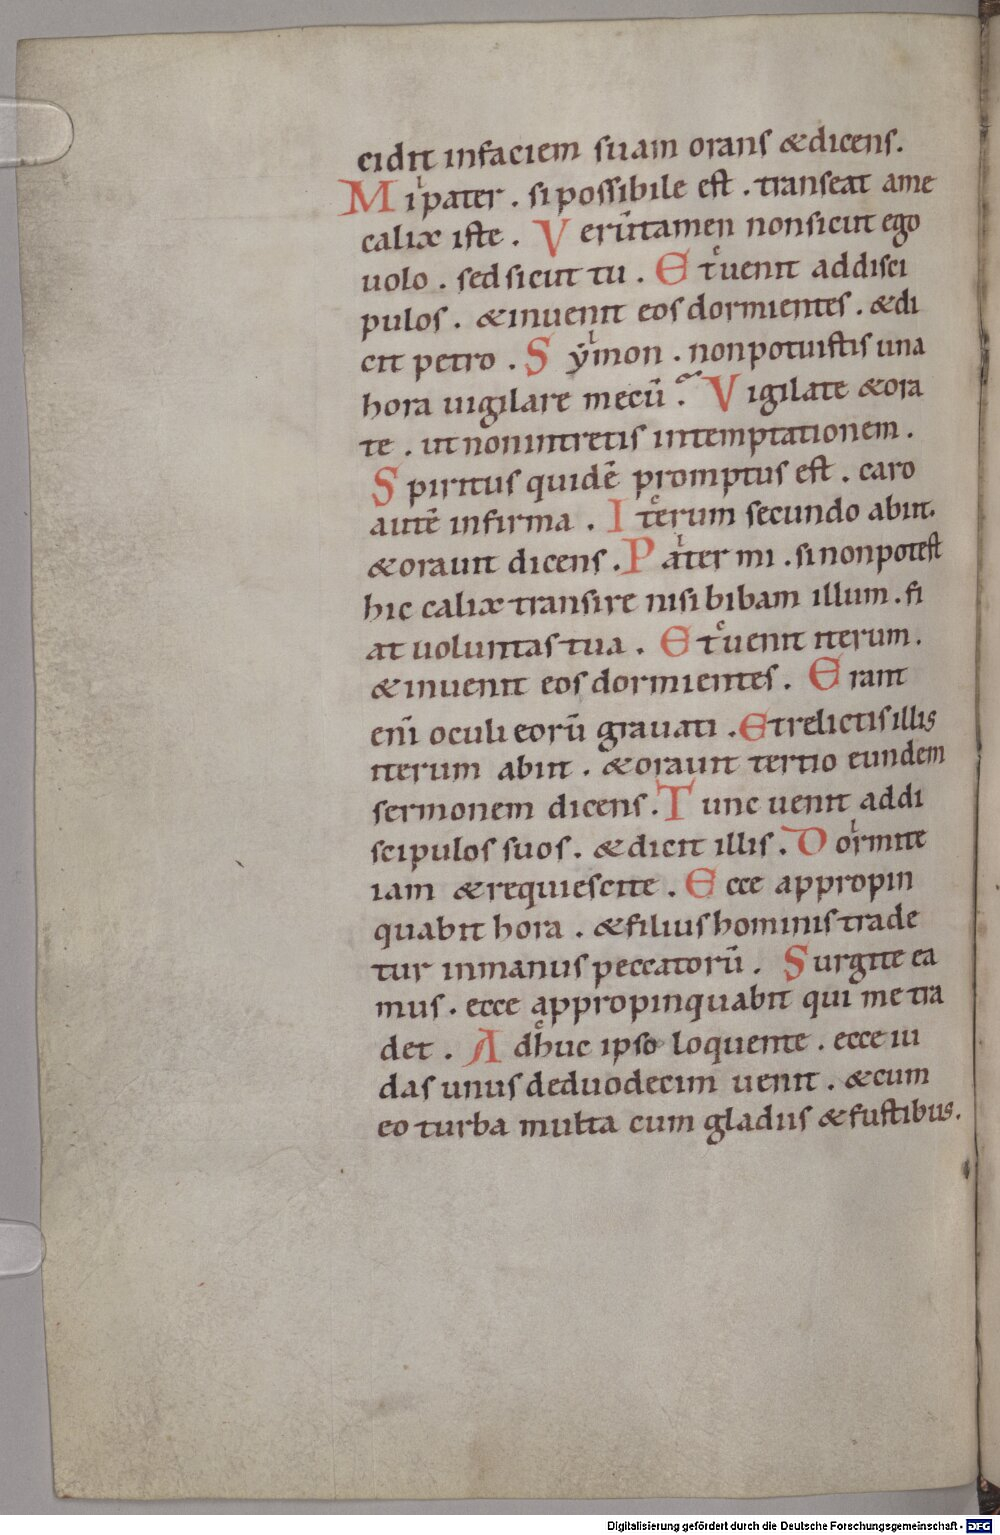 cidit infaciem suam orans &dicens.
Mi pater . si possibile est . transeat ame
calix iste . Verũtamen nonsicut ego
uolo . sed sicut tu . Et uenit addisci
pulos . &inuenit eos dormientes . &di
cit petro . Symon . nonpotuistis una
hora uigilare mecũ ? Vigilate &ora
te . ut nonintretis intemptationem .
Spiritus quidẽ promptus est . caro
autẽ infirma . Iterum secundo abiit.
&orauit dicens . Pater mi . si nonpotest
hic calix transire nisi bibam illum . fi
at uoluntas tua . Et uenit iterum .
&inuenit eos dormientes . Erant
eni̅ oculi eorũ grauati . Et relictis illis
iterum abiit . &orauit tertio eundem
sermonem dicens . Tunc uenit addi
scipulos suos . &dicit illis . Dormite
iam &requiescite . Ecce appropin
quabit hora . &filius hominis trade
tur inmanus peccatorũ . Surgite ea
mus . ecce appropinquabit qui me tra
det . Adhuc ipso loquente . ecce iu
das unus deduodecim uenit . &cum
eo turba multa cum gladiis &fustibus .
Digitalisierung gefördert durch die Deutsche Forschungsgemeinschaft - DFG